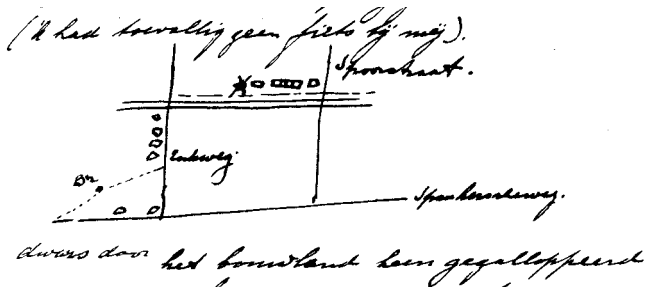 ('k had toevallig geen fiets bij mij).
Spoorstraat.
Enkweg.
dwars door het bouwland heen gegalloppeerd